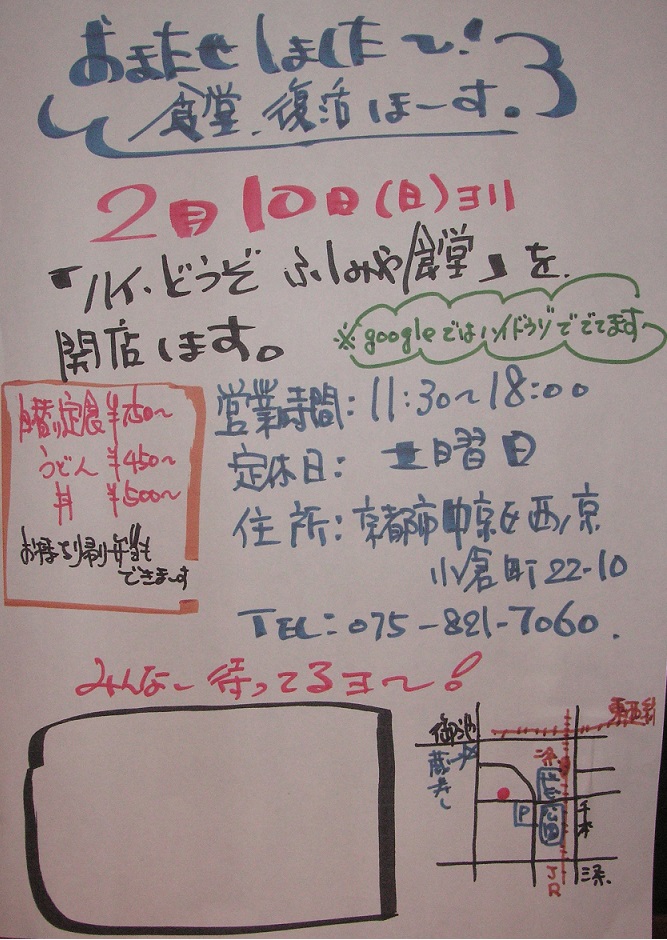 おまたせしました〜!
食堂、復活ほーす。
2月10日(日)ヨリ
「ハイ、どうぞ ふしみや食堂」を、
開店します。
※googleではハイドウゾででてます
日替り定食 ¥750〜
うどん ¥450〜
丼 ¥500〜
お持ち帰り弁当も
できまーす
営業時間:11:30〜18:00
定休日: 土曜日
住所:京都市中京区西ノ京
小倉町22-10
TEL:075-821-7060.
みんなー待ってるヨ〜!
東西線
御池
蔵寿し
P
千本
JR
三条